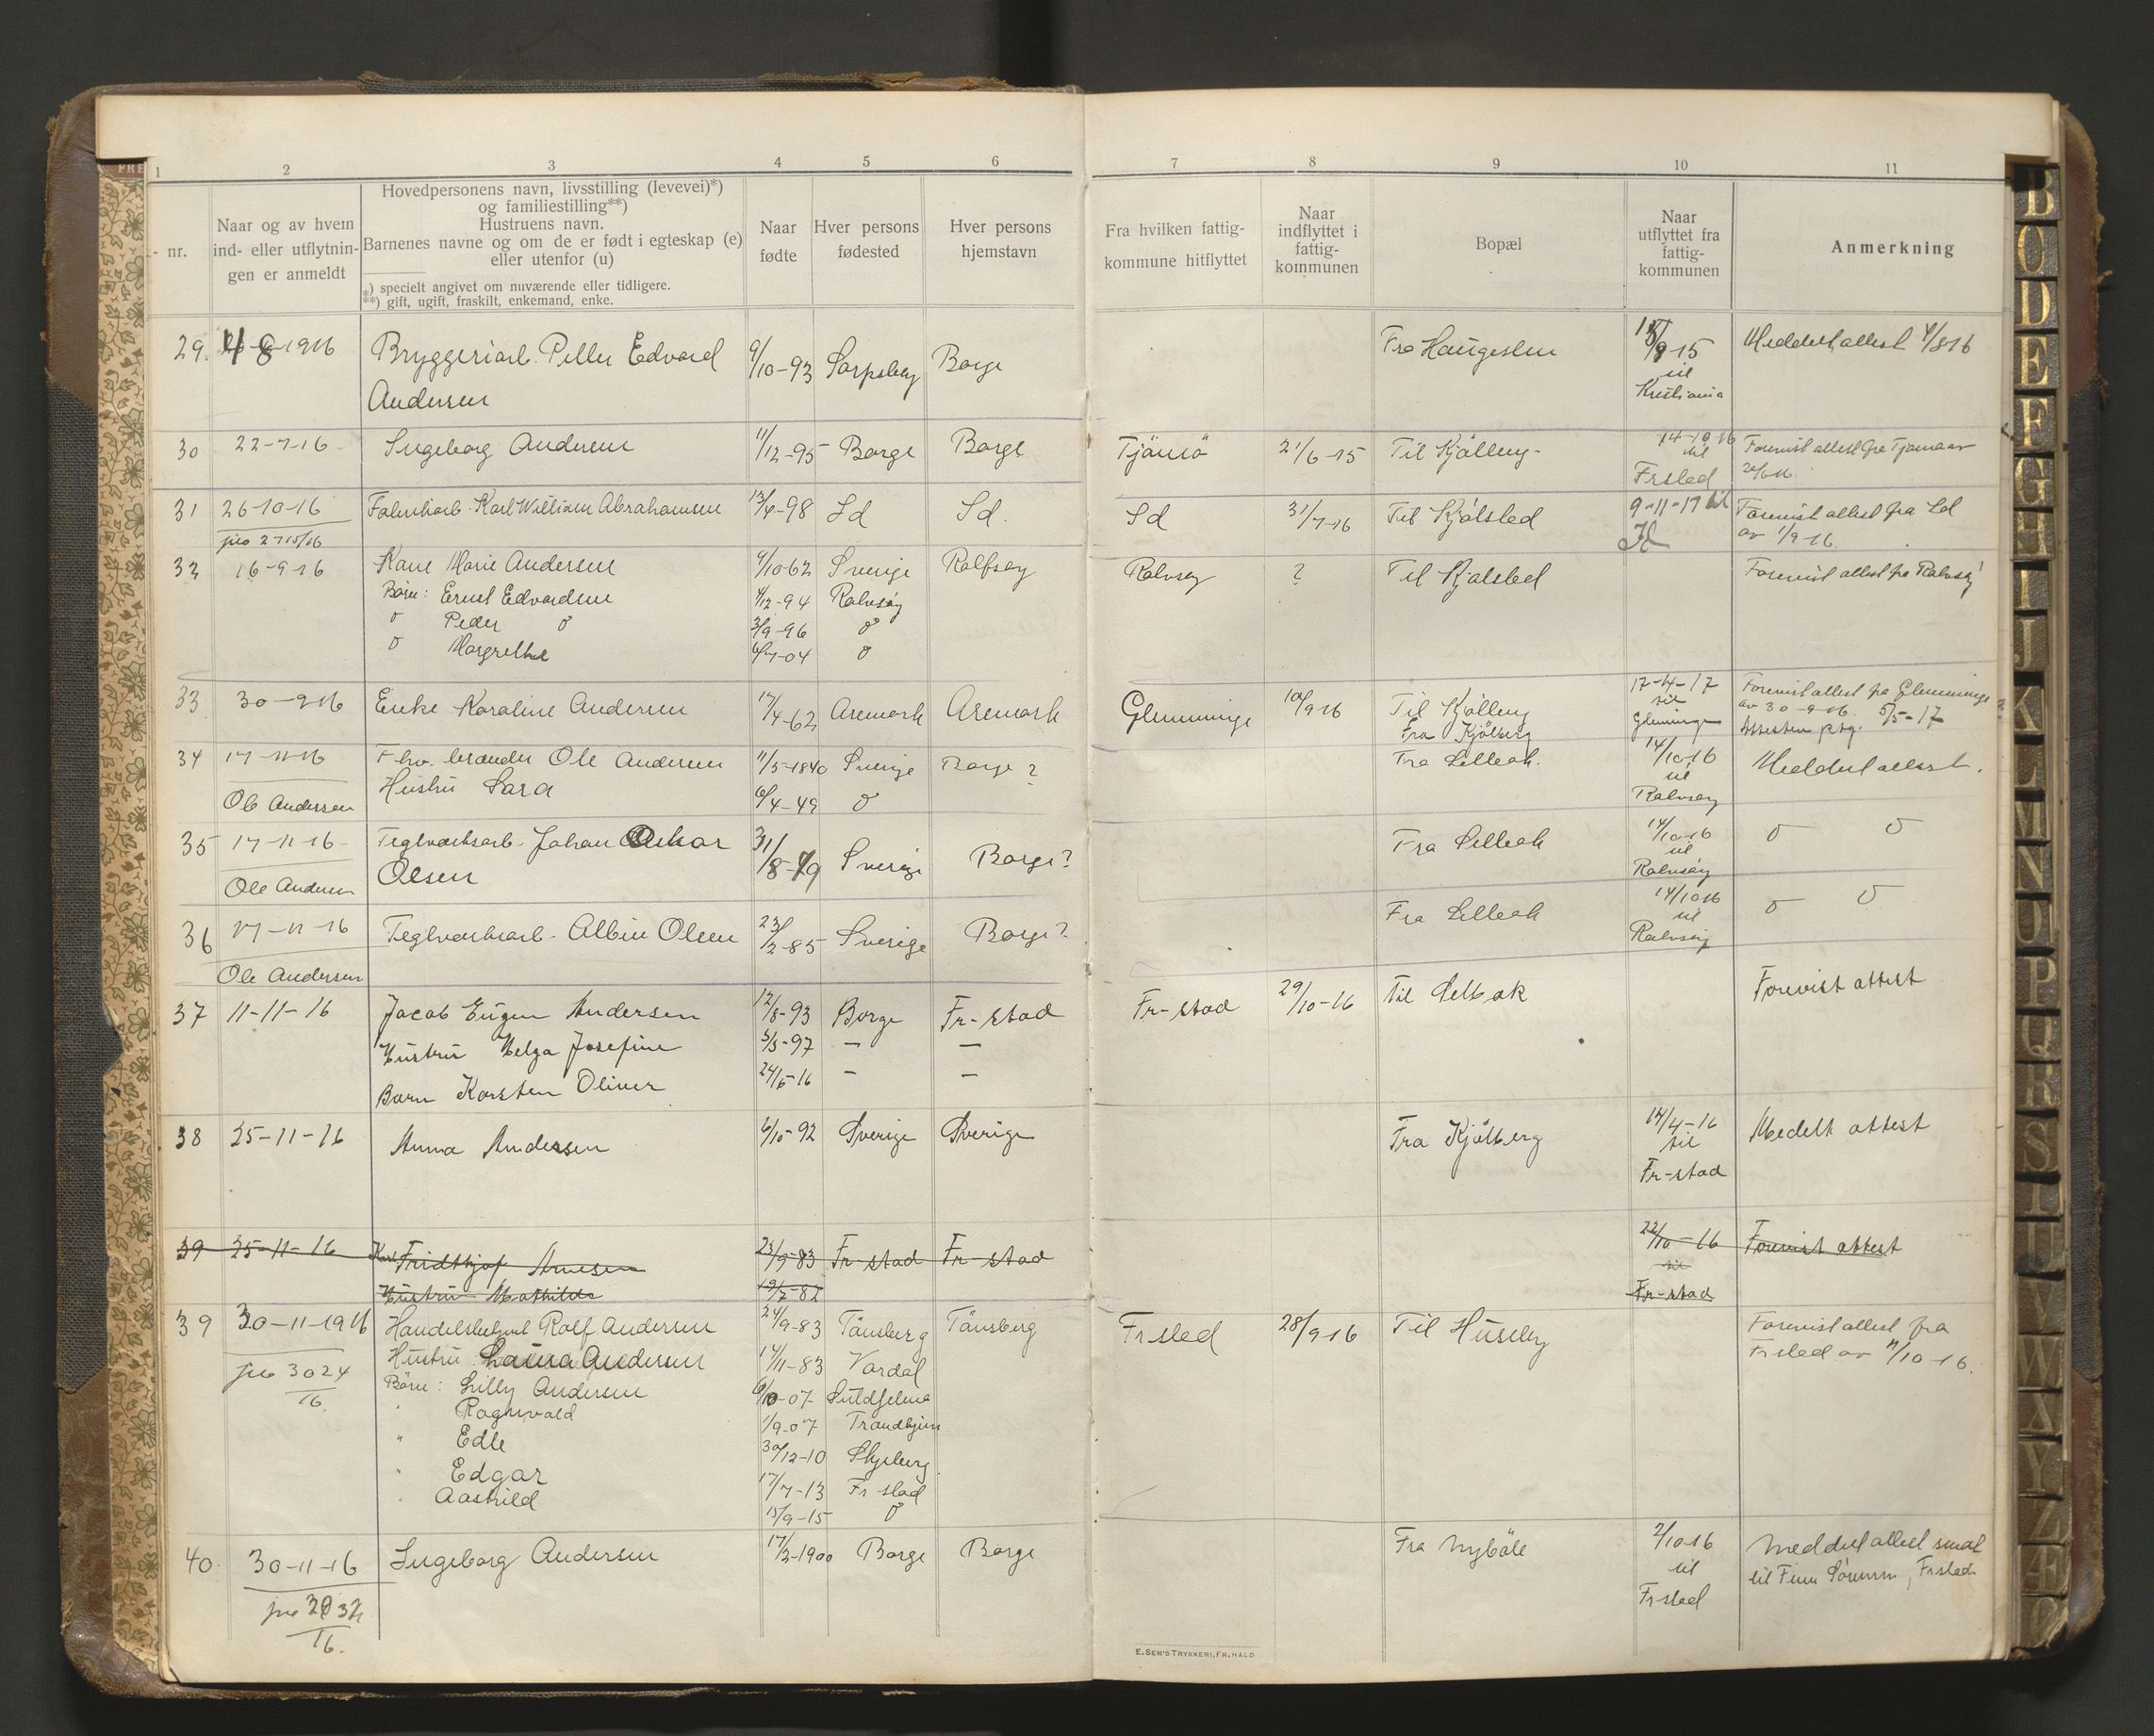 1 2 3 4 5 6 7 8 9 10 11
- nr.
Naar og av hvem
ind- eller utflytnin-
gen er anmeldt
Hovedpersonens navn, livsstilling (levevei)*)
og familiestilling**)
Hustruens navn.
Barnenes navne og om de er født i egteskap (e)
eller utenfor (u)
*) specielt angivet om nuværende eller tidligere.
**) gift, ugift, fraskilt, enkemand, enke.
Naar
fødte
Hver persons
fødested
Hver persons
hjemstavn
Fra hvilken fattig-
kommune hitflyttet
Naar
indflyttet i
fattig-
kommunen
Bopæl
Naar
utflyttet fra
fattig-
kommunen
Anmerkning
29. 4 8-1916 Bryggeriarb. Petter Edvard 9/10-93 Sarpsborg Borge Fra Haugesten 15/9-15 Meddelt attest 4/8 16
Andersen til
Kristiania
30 22-7-16 Ingeborg Andersen 11/12-95 Borge Borge Tjømø 21/6-15 Til Kjølberg 14-10-16 Forevist attest fra Tjømø av
til
Frstad
31 26-10-16 Fabrikarb. Karl William Abrahamsen 13/4-98 Id Id. Id 31/7-16 Til Kjølstad 9-11-17 til Forevist attest fra Id
jno 2715/16 Id av 1/9-16.
32 16-9-16 Kaue Marie Andersen 9/10-62 Sverige Rolfsøy Rolvsøy ? Til Kjølstad Forevist attest fra Rolvsøy
Børn: Ernst Edvardsen 4/12-94 Rolvsøy
o Peder o 3/9-96 o
o Margrethe 6/7-04 o
33 30-9-16 Enke Karoline Andersen 17/4-62 Aremark Aremark Glemminge 10/9 16 Til Kjølberg 17-4-17 Forevist attest fra Glemminge
Fra Kjölberg til av 30-9-16. 5/5-17
Glemminge Attesten
34 17-11-16 Fhv. Ole Andersen 11/5-1840 Sverige Borge? Fra Lilleøk. 14/10-16 Meddelt attest.
Ole Andersen Hustru Sara 6/4-49 o til
Rolvsøy
35 17-11-16 Teglverksarb. Johan Oskar 31/8-79 Sverige Borge? Fra Lilleøk 14/10-16 o o
Ole Andersen Olsen til
Rolvsøy
36 17-11-16 Teglverksarb. Albin Olsen 23/2-85 Sverige Borge? Fra Lilleøk 14/10 16 o o
Ole Andersen til
Rolvsøy
37 11-11-16 Jacob Eugen Andersen 12/8-93 Borge Fr-stad Fr-stad 29/10-16 Til Selbak Forevist attest
Hustru Helga Josefine 5/3-97 — —
Barn Karsten Oliver 24/5-16 — —
38 25-11-16 Anna Andersen 6/10-92 Sverige Sverige Fra Kjölberg 14/4-16 Medelt attest
til
Fr-stad
39 25-11-16 Karl Fridthjof Arnesen 23/9-83 Fr-stad Fr-stad 22/10-16 Forevist attest
Hustru Mathilde 19/7-82 til
Fr-stad
39 30-11-1916 Handelsbetjent Rolf Andersen 24/9-83 Tønsberg Tønsberg Frstad 28/9-16 Til Huseby Forevist attest fra
jno 3024 Hustru Laura Andersen 14/11-83 Vardal Frstad av 11/10-16.
16. Børn: Lilly Andersen 6/10-07 Suldjelma
" Ragnvald 1/9-07 Trondhjem
" Edle 30/12-10 Skjeberg
" Edgar 17/7-13 Frstad
" Aashild 15/9-15 o
40. 30-11-16 Ingeborg Andersen 17/3-1900 Borge Borge Fra Nyböle 2/10-16 Meddelt attest sendt
jno 3032 til til Finn Sørensen, Frstad
16. Frstad
E. SEM'S TRYKKERI, FR.HALD
B C D E F G H I J K L M N O P Q R S T U V W X Y Z Æ Ø